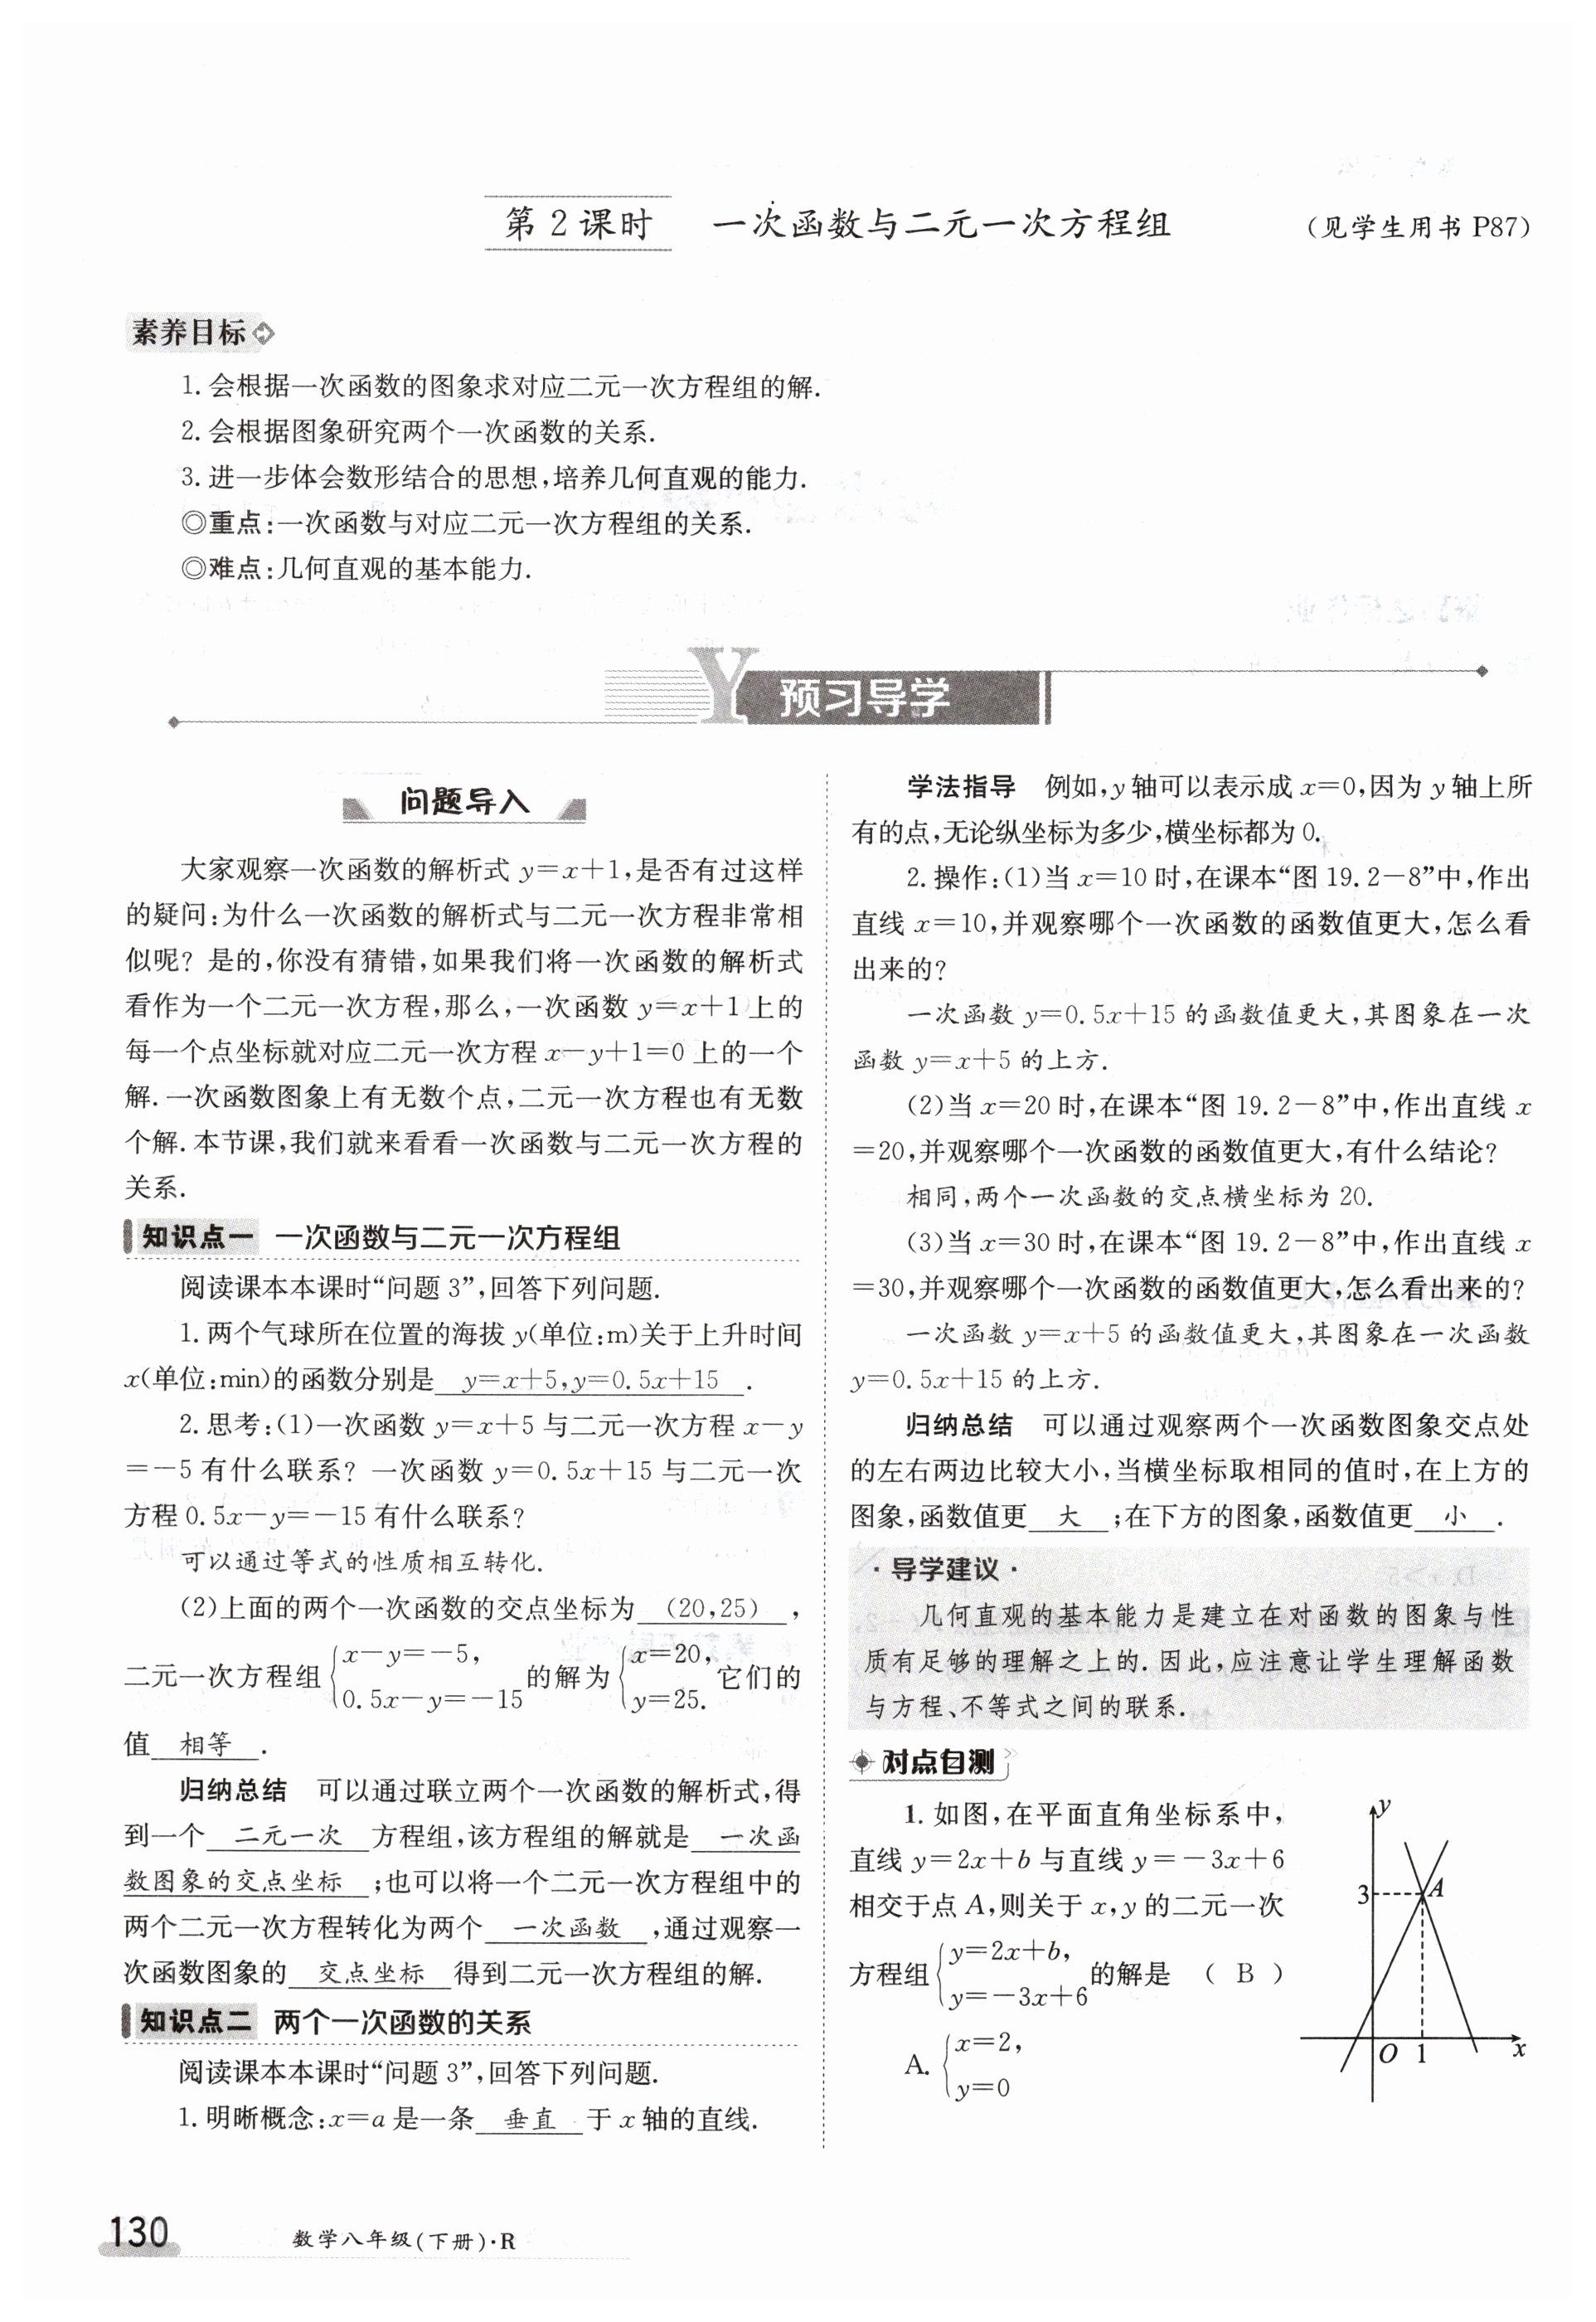 第2课时 一次函数与二元一次方程组 (见学生用书 P87)
素养目标
1.会根据一次函数的图象求对应二元一次方程组的解.
2.会根据图象研究两个一次函数的关系.
3.进一步体会数形结合的思想,培养几何直观的能力.
◎重点:一次函数与对应二元一次方程组的关系.
◎难点:几何直观的基本能力.
Y 预习导学
问题导入
大家观察一次函数的解析式 y=x+1,是否有过这样
的疑问:为什么一次函数的解析式与二元一次方程非常相
似呢? 是的,你没有猜错,如果我们将一次函数的解析式
看作为一个二元一次方程,那么,一次函数 y=x+1 上的
每一个点坐标就对应二元一次方程 x-y+1=0 上的一个
解.一次函数图象上有无数个点,二元一次方程也有无数
个解.本节课,我们就来看看一次函数与二元一次方程的
关系.
知识点一 一次函数与二元一次方程组
阅读课本本课时“问题 3”,回答下列问题.
1.两个气球所在位置的海拔 y(单位:m)关于上升时间
x(单位:min)的函数分别是 y=x+5,y=0.5x+15 .
2.思考:(1)一次函数 y=x+5 与二元一次方程 x-y
=-5 有什么联系? 一次函数 y=0.5x+15 与二元一次
方程 0.5x-y=-15 有什么联系?
可以通过等式的性质相互转化.
(2)上面的两个一次函数的交点坐标为 (20,25) ,
二元一次方程组 {x-y=-5, 0.5x-y=-15 的解为 {x=20, y=25. 它们的
值 相等 .
归纳总结 可以通过联立两个一次函数的解析式,得
到一个 二元一次 方程组,该方程组的解就是 一次函
数图象的交点坐标 ;也可以将一个二元一次方程组中的
两个二元一次方程转化为两个 一次函数 ,通过观察一
次函数图象的 交点坐标 得到二元一次方程组的解.
知识点二 两个一次函数的关系
阅读课本本课时“问题 3”,回答下列问题.
1.明晰概念:x=a 是一条 垂直 于 x 轴的直线.
学法指导 例如,y 轴可以表示成 x=0,因为 y 轴上所
有的点,无论纵坐标为多少,横坐标都为 0.
2.操作:(1)当 x=10 时,在课本“图 19.2-8”中,作出
直线 x=10,并观察哪个一次函数的函数值更大,怎么看
出来的?
一次函数 y=0.5x+15 的函数值更大,其图象在一次
函数 y=x+5 的上方.
(2)当 x=20 时,在课本“图 19.2-8”中,作出直线 x
=20,并观察哪个一次函数的函数值更大,有什么结论?
相同,两个一次函数的交点横坐标为 20.
(3)当 x=30 时,在课本“图 19.2-8”中,作出直线 x
=30,并观察哪个一次函数的函数值更大,怎么看出来的?
一次函数 y=x+5 的函数值更大,其图象在一次函数
y=0.5x+15 的上方.
归纳总结 可以通过观察两个一次函数图象交点处
的左右两边比较大小,当横坐标取相同的值时,在上方的
图象,函数值更 大 ;在下方的图象,函数值更 小 .
·导学建议·
几何直观的基本能力是建立在对函数的图象与性
质有足够的理解之上的.因此,应注意让学生理解函数
与方程、不等式之间的联系.
对点自测
1.如图,在平面直角坐标系中,
直线 y=2x+b 与直线 y=-3x+6
相交于点 A,则关于 x,y 的二元一次
方程组 {y=2x+b, y=-3x+6 的解是 ( B )
A. {x=2, y=0
y
3
A
O 1 x
130 数学八年级(下册)·R